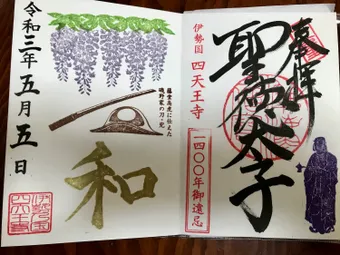 奉拝
聖徳太子
伊勢国 四天王寺
一四〇〇年御遠忌
藤堂高虎に仕えた
磯野家の刀・兜
和
令和三年五月五日